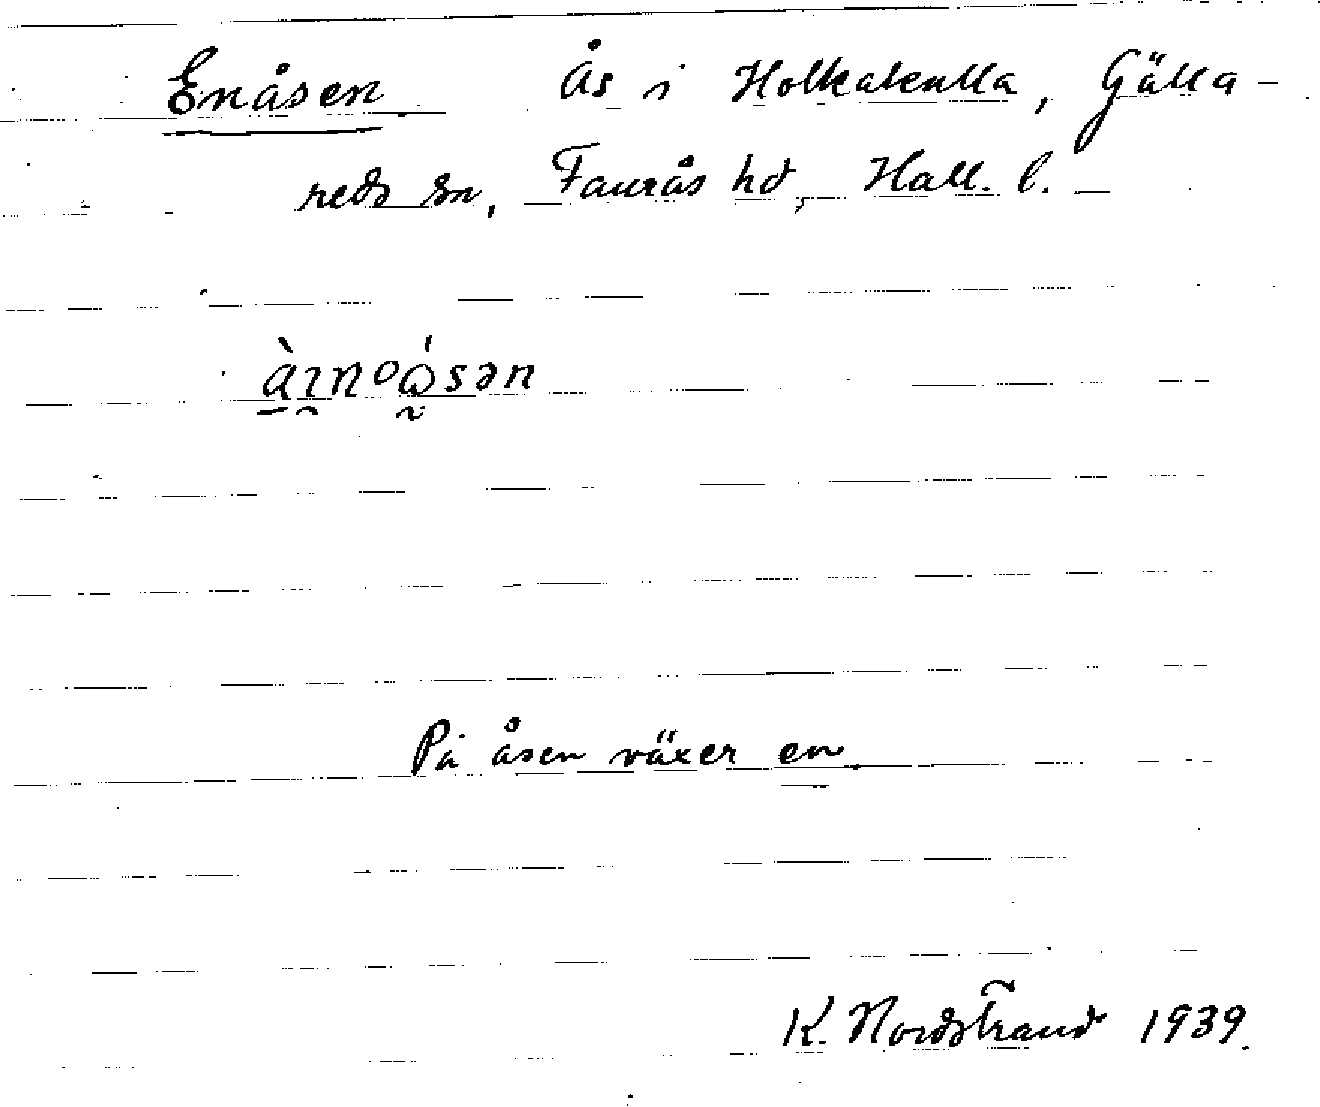 Enåsen Ås i Holkakulla, Gälla-
reds sn, Faurås hd, Hall. l.
På åsen växer en
K. Nordstrand 1939.